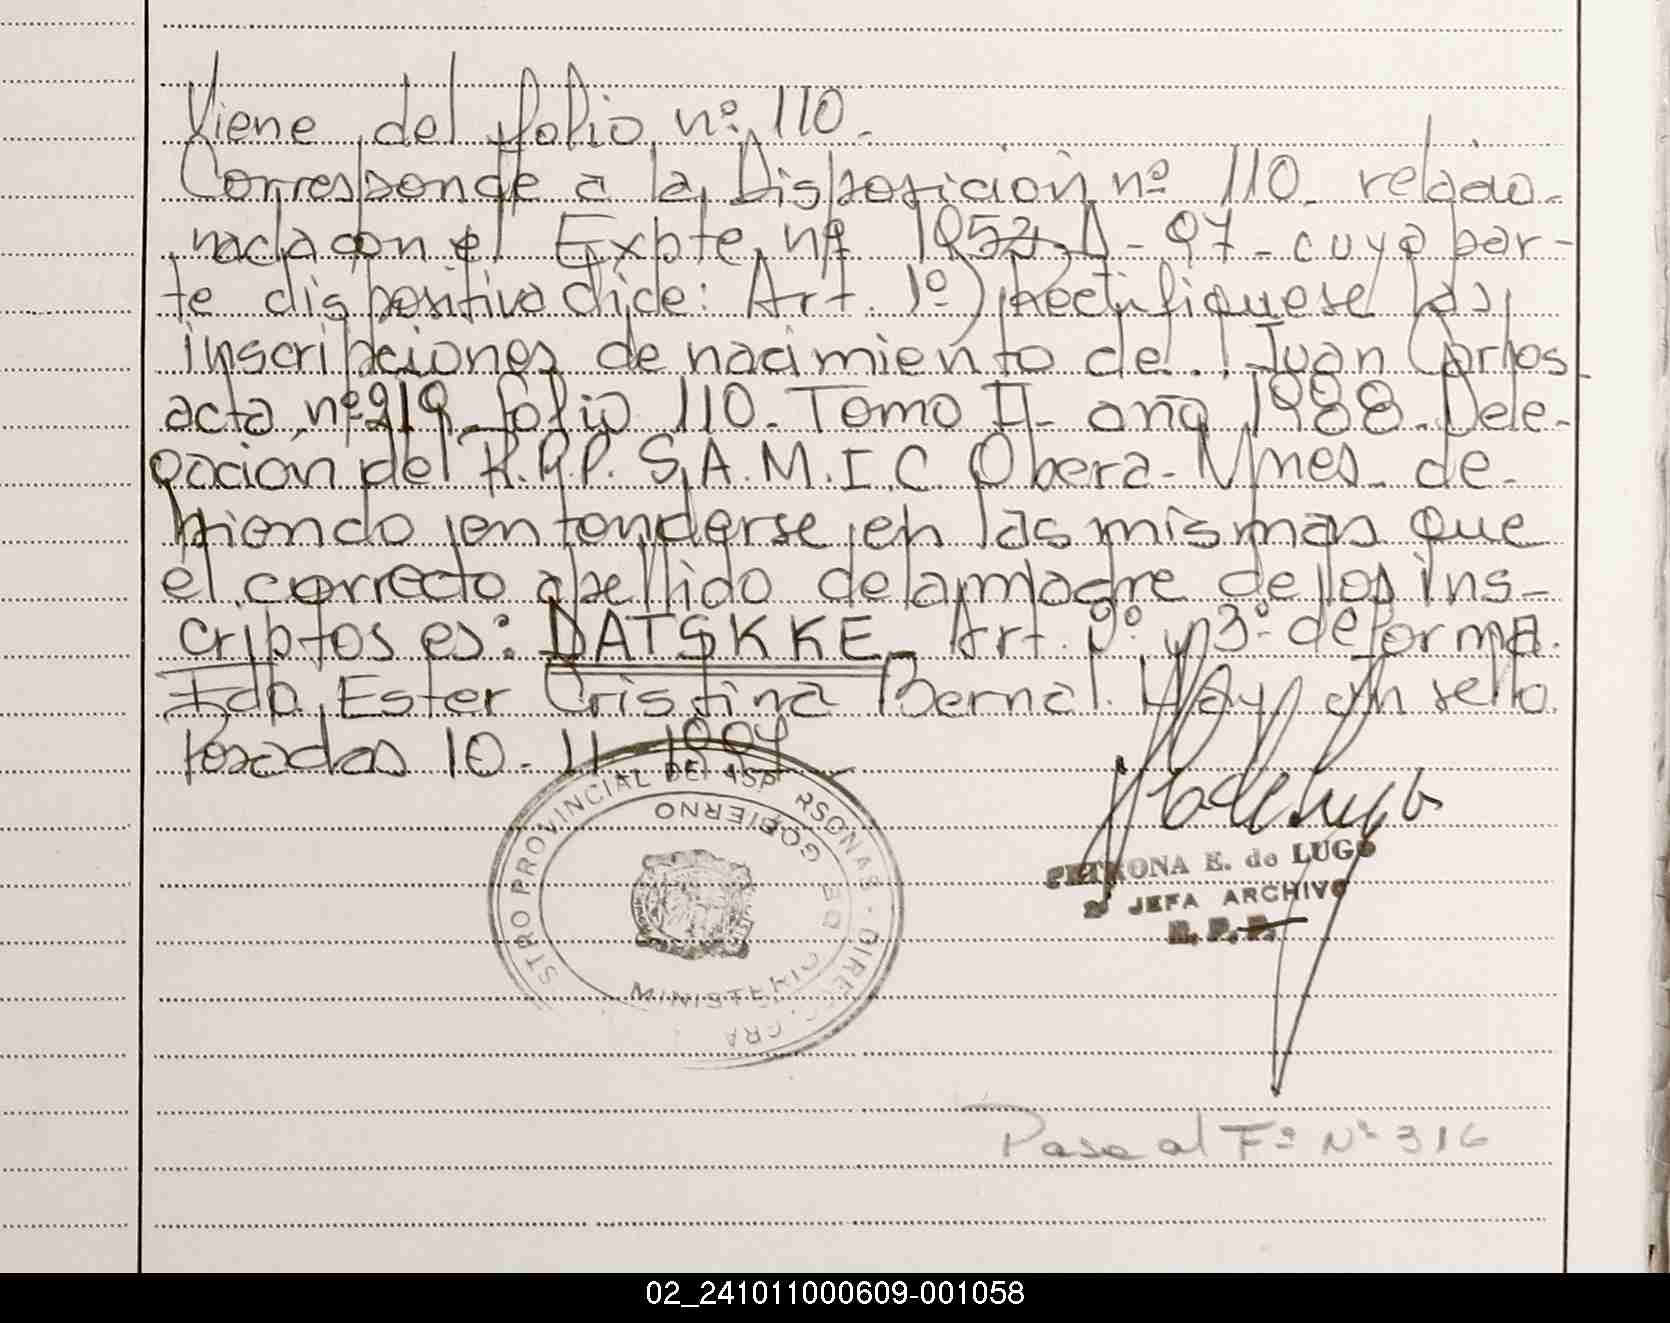 Viene del folio nº 110.
Corresponde a la Disposicion nº 110. relacio-
nada con el Expte nº 1952-D-97- cuya par-
te dispositiva dice: Art. 1º) Rectifiquese las
inscripciones de nacimiento de..! Juan Carlos
acta nº 219 folio 110. Tomo II- año 1988. Dele-
gacion del R.P.P. S.A.M.I.C Obera- Mnes. de-
biendo entenderse en las mismas que
el correcto apellido de la madre de los ins-
criptos es: DATSKKE. Art. 2º y 3º de forma.
Fdo. Ester Cristina Bernal. Hay un sello.
Posadas 10-11-1997
STRO PROVINCIAL DE RSONAS - DIREC. GRA
MINISTERIO DE GOBIERNO
PETRONA E. de LUGO
JEFA ARCHIVO
R. P. P.
Pasa al Fº Nº 316
02_241011000609-001058